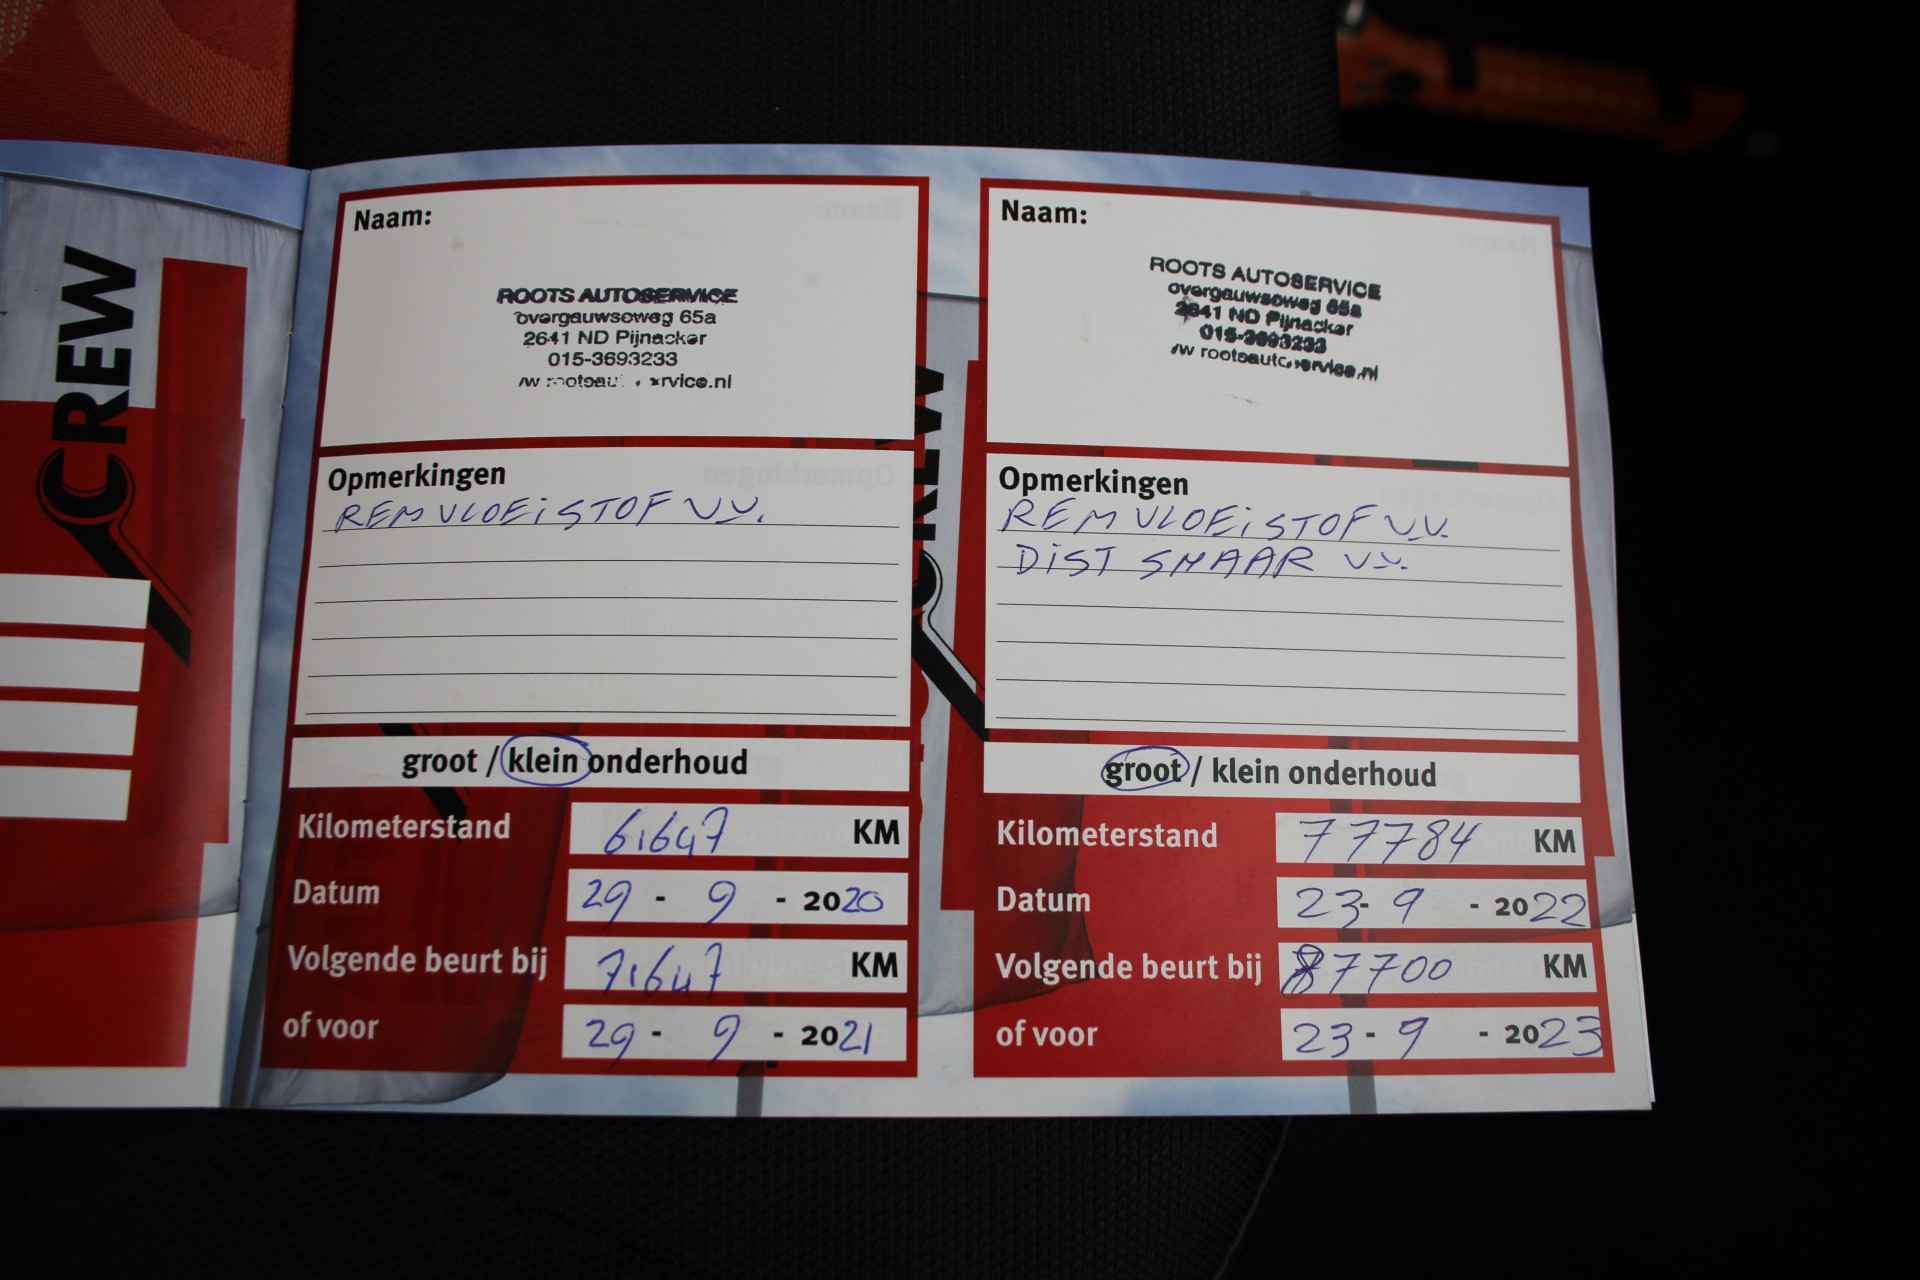 CREW
Naam:
ROOTS AUTOSERVICE
overgauwseweg 65a
2641 ND Pijnacker
015-3693233
Opmerkingen
REMVLOEISTOF V.V.
groot / klein onderhoud
Kilometerstand 61647 KM
Datum 29 - 9 - 2020
Volgende beurt bij 71647 KM
of voor 29 - 9 - 2021
CREW
Naam:
ROOTS AUTOSERVICE
overgauwseweg 65a
2641 ND Pijnacker
015-3693233
Opmerkingen
REMVLOEISTOF V.V.
DIST SMAAR V.V.
groot / klein onderhoud
Kilometerstand 77784 KM
Datum 23 - 9 - 2022
Volgende beurt bij 87700 KM
of voor 23 - 9 - 2023